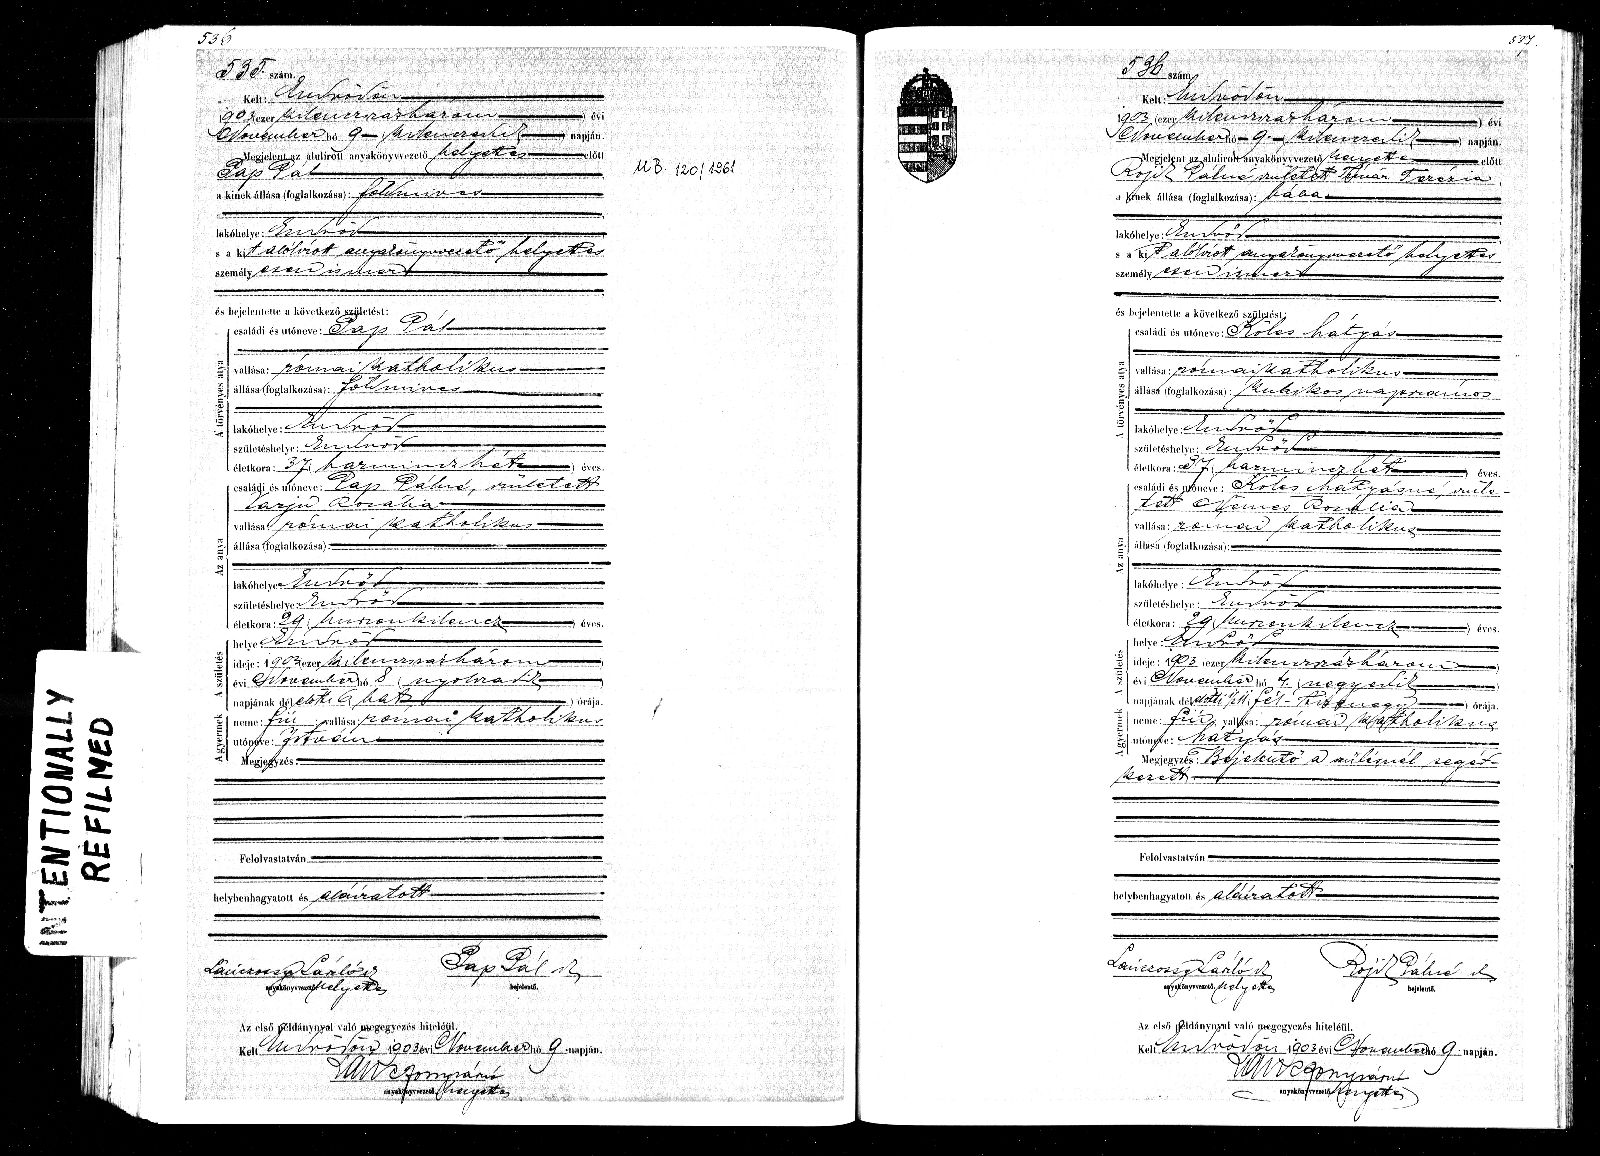 536
535. szám.
Kelt: Endrődön
1903 (ezer kilenczszázhárom ) évi
November hó 9 ( kilenczedik ) napján.
Megjelent az alulirott anyakönyvvezető helyettes előtt
Pap Pál
a kinek állása (foglalkozása): földmíves
lakóhelye: Endrőd
s a kit alólírott anyakönyvvezető helyettes
személyesen ismer
és bejelentette a következő születést:
A törvényes atya
családi és utóneve: Pap Pál
vallása: római katholikus
állása (foglalkozása): földmíves
lakóhelye: Endrőd
születéshelye: Endrőd
életkora: 37 ( harminczhét ) éves.
Az anya
családi és utóneve: Pap Pálné, született
Varjú Rozália
vallása: római katholikus
állása (foglalkozása):
lakóhelye: Endrőd
születéshelye: Endrőd
életkora: 29 ( huszonkilencz ) éves.
A születés
helye: Endrőd
ideje: 1903 (ezer kilenczszázhárom )
évi November hó 8 ( nyolczadik )
napjának délelőtti 6 hat ) órája.
A gyermek
neme: fiú vallása: római katholikus
utóneve: István
Megjegyzés:
Felolvastatván
helybenhagyatott és aláíratott
László Pap Pál
anyakönyvvezető. helyettes bejelentő.
Az első példánynyal való megegyezés hiteléül.
Kelt Endrődön 1903 évi November hó 9 napján.
anyakönyvvezető. helyettes
MB. 120/1961
INTENTIONALLY
REFILMED
537
536 szám
Kelt: Endrődön
1903 (ezer kilenczszázhárom ) évi
November hó 9 ( kilenczedik ) napján.
Megjelent az alulirott anyakönyvvezető helyettes előtt
Rojik Pálné született Terézia
a kinek állása (foglalkozása): bába
lakóhelye: Endrőd
s a kit alólírott anyakönyvvezető helyettes
személyesen ismer
és bejelentette a következő születést:
A törvényes atya
családi és utóneve: Kólos Mátyás
vallása: római katholikus
állása (foglalkozása): kubikos napszámos
lakóhelye: Endrőd
születéshelye: Endrőd
életkora: 37 ( harminczhét ) éves.
Az anya
családi és utóneve: Kólos Mátyásné szüle-
tett Nemes Rozália
vallása: római katholikus
állása (foglalkozása):
lakóhelye: Endrőd
születéshelye: Endrőd
életkora: 29 ( huszonkilencz ) éves.
A születés
helye: Endrőd
ideje: 1903 (ezer kilenczszázhárom )
évi November hó 4 ( negyedik )
napjának délelőtti fél ) órája.
A gyermek
neme: fiú, vallása: római katholikus
utóneve: Mátyás
Megjegyzés: Bejelentő a szülésnél segéd-
kezett
Felolvastatván
helybenhagyatott és aláíratott
László Rojik Pálné
anyakönyvvezető. helyettes bejelentő.
Az első példánynyal való megegyezés hiteléül.
Kelt Endrődön 1903 évi November hó 9 napján.
anyakönyvvezető. helyettes